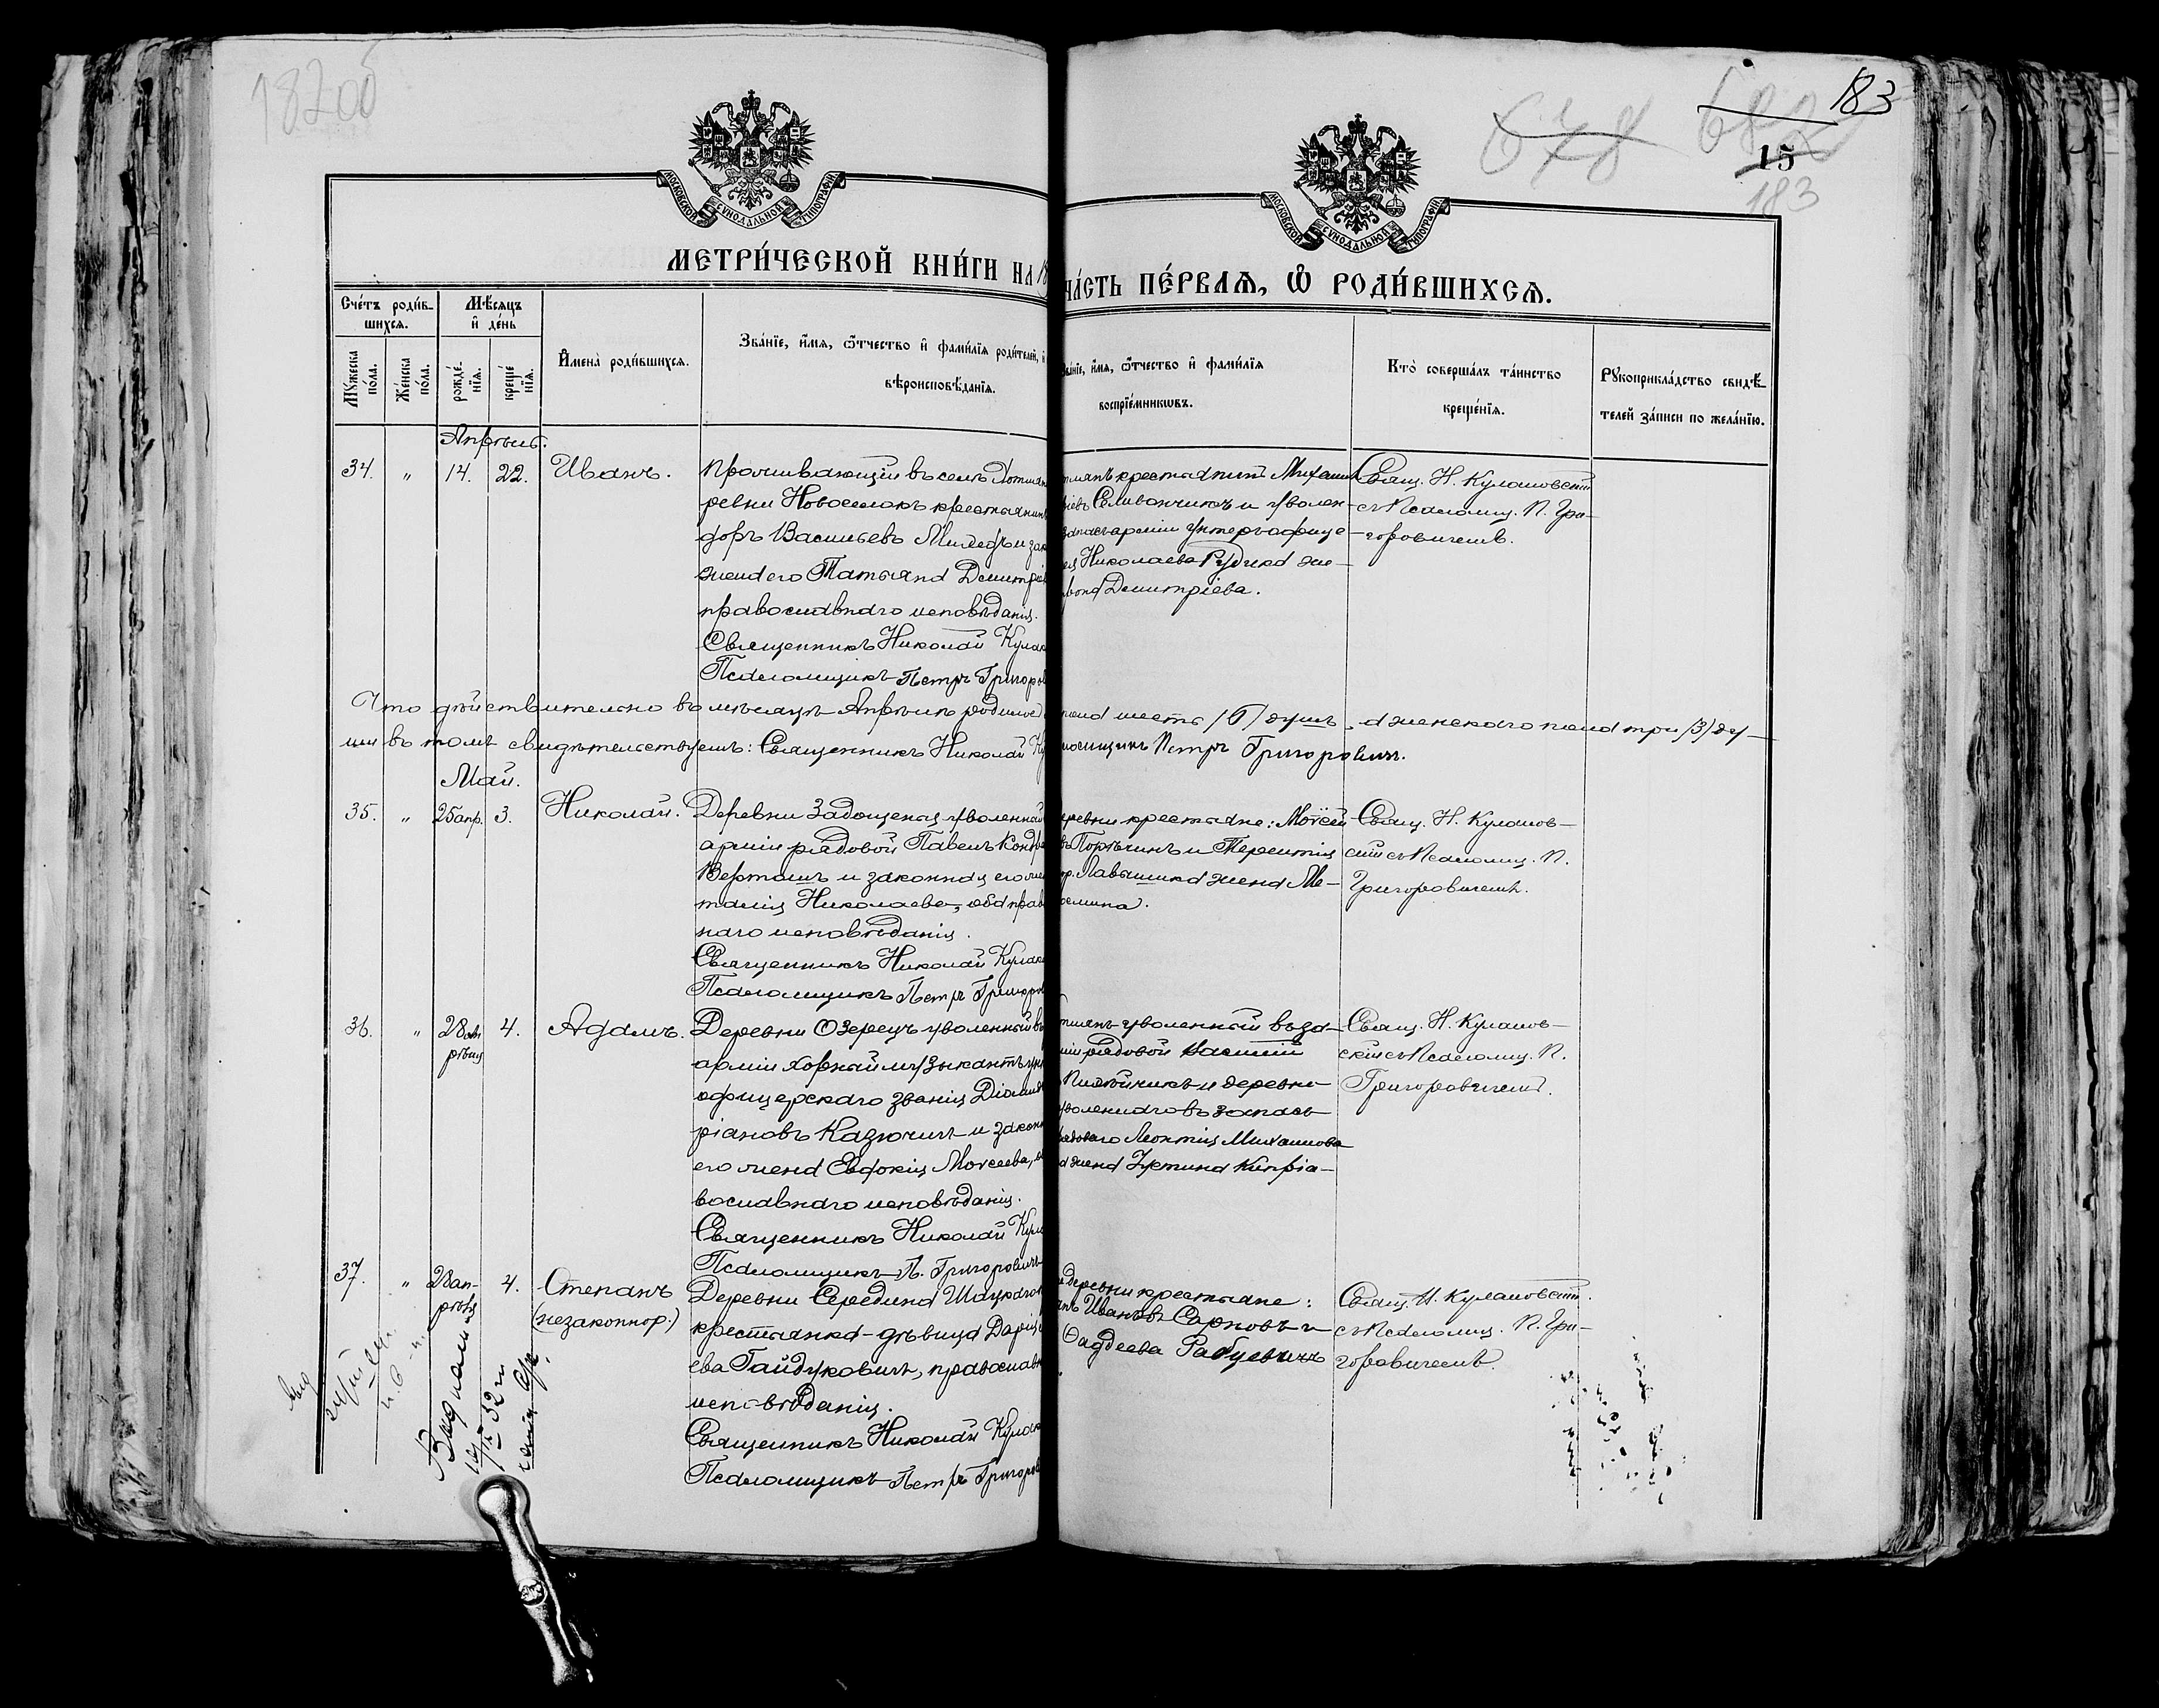 182об
678
682
183
15
183
МОСКОВСКОЙ СУНОДАЛЬНОЙ ТИПОГРАФІИ
МОСКОВСКОЙ СУНОДАЛЬНОЙ ТИПОГРАФІИ
МЕТРИ́ЧЕСКОЙ КНИ́ГИ НА 18
ЧА́СТЬ ПЕ́РВАѦ, Ѡ РОДИ́ВШИХСѦ.
Сче́тъ роди́в-
шихсѧ.
Мѣ́сѧцъ
и҆ де́нь
Мꙋ́жеска по́ла.
Же́нска по́ла.
рожде́-нїѧ.
креще́нїѧ.
И҆мена̀ роди́вшихсѧ.
Зва́нїе, и҆́мѧ, ѻ҆́тчество и҆ фами́лїѧ роди́телей, и҆
вѣроисповѣ́данїѧ.
Зва́нїе, и҆́мѧ, ѻ҆́тчество и҆ фами́лїѧ
воспрїе́мникѡвъ.
Кто̀ соверша́лъ та́инство
креще́нїѧ.
Рꙋкоприкла́дство свидѣ́-
телей за́писи по жела́нїю.
Апрѣль.
34. " 14. 22. Иванъ.
Проживающій въ селѣ Хотля
ревни Новоселокъ крестьянинъ
доръ Васильевъ и зак
жена его Татіана Димитріе
православнаго исповѣданія.
Священникъ Николай Кулак
Псаломщикъ Петръ Григоров
крестьянинъ Михаилъ
Селиванчикъ и уволен-
запасъ арміи унтеръ-офице-
Николаева Рудика же-
Димитріева.
Свящ. Н. Кулаковскій
съ Псаломщ. П. Гри-
горовичемъ.
Что дѣйствительно въ мѣсяцѣ Апрѣлѣ родилось
пола шесть /6/ душъ, а женскаго пола три /3/ ду-
ши въ томъ свидѣтельствуемъ: Священникъ Николай Ку
ломщикъ Петръ Григоровичъ.
Май.
35. " 25 апр. 3. Николай.
Деревни Задощеня уволенный
арміи рядовой Павелъ Кондр
и законная его же
талія Николаева, оба прав
наго исповѣданія.
Священникъ Николай Кулак
Псаломщикъ Петръ Григоров
деревни крестьяне: Моисей
въ и Терентія
жена Ме-
Свящ. Н. Кулаков-
скій съ Псаломщ. П.
Григоровичемъ.
36. " 28 ап-
рѣля 4. Адамъ.
Деревни Озерецъ уволенный въ
арміи хорный музыкантъ ун
офицерскаго званія
ріановъ Казючиц и закон
его жена Евдокія Моисеева,
вославнаго исповѣданія.
Священникъ Николай Кула
Псаломщикъ П. Григоровичъ
уволенный въ за-
рядовой Василій
и деревни
уволеннаго въ запасъ
рядоваго Леонтія Михаилова
жена Устина Кипріа-
Свящ. Н. Кулаков-
скій съ Псаломщ. П.
Григоровичемъ.
37. " 28 ап-
рѣля 4. Степанъ
(незаконнор.)
Деревни Середина Шацкаго
крестьянка-дѣвица Дарія
ева Гайдуковичъ, православн
исповѣданія.
Священникъ Николай Кулак
Псаломщикъ Петръ Григоров
деревни крестьяне:
Ивановъ Сарновъ и
Фаддеева Рабцевичъ
Свящ. Н. Кулаковскій
съ Псаломщ. П. Гри-
горовичемъ.